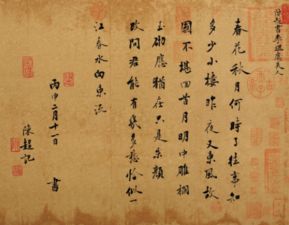 虞美人
春花秋月何時了往事知
多少小樓昨夜又東風故
國不堪回首月明中雕欄
玉砌應猶在只是朱顏
改問君能有幾多愁恰似一
江春水向東流
丙申二月十一日 書